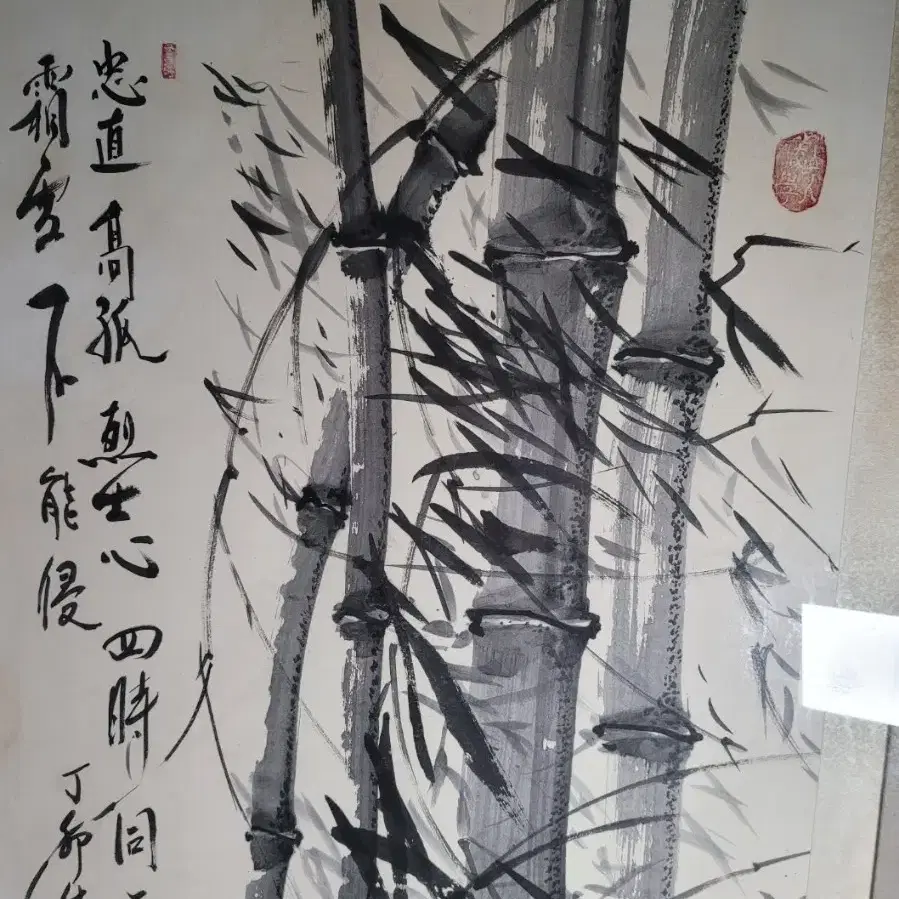 忠直高孤烈士心四時同
霜雪不能侵
丁卯